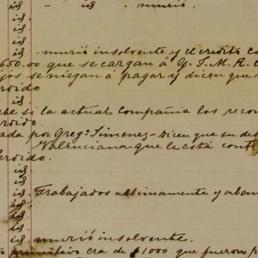 id - id - murió
id
id
id murió insolvente y el credito co
650.00 que se cargan á G. T. M. R. C
jos se niegan á pagar y dicen que
rdido
id
be si la actual compañia los recon
rdido
ada por Gregº Jimenez - Dicen que su de
Valenciana que le está cont
erdido.
id
id
id Trabajados ultimamente y aban
id
id
id murió insolvente.
primitivo era de $1000 que fueron p